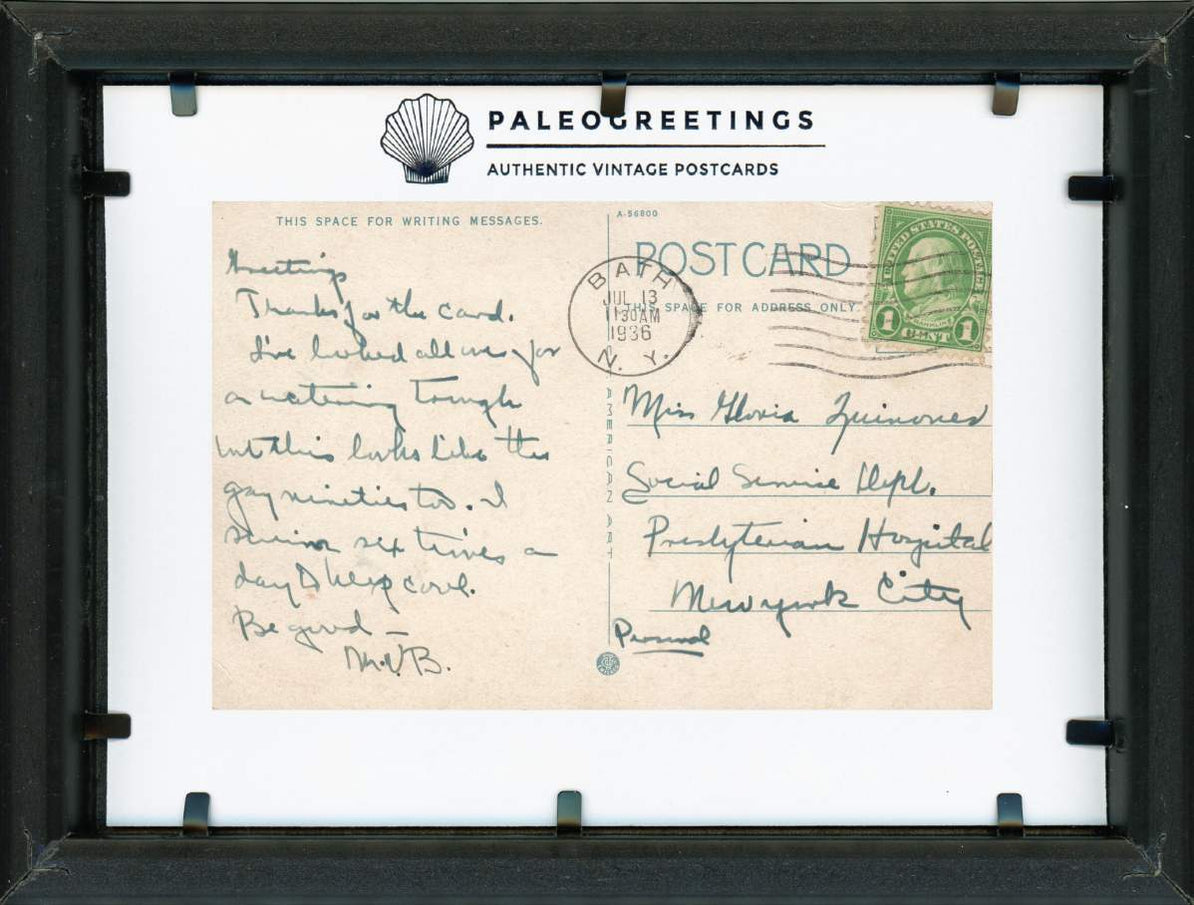 PALEOGREETINGS
AUTHENTIC VINTAGE POSTCARDS
THIS SPACE FOR WRITING MESSAGES.
Greetings
Thanks for the card.
I've looked all over for
a watering trough
but this looks like the
gay nineties too. I
swim six times a
day & keep cool.
Be good —
M.V.B.
A-56800
POST CARD
THIS SPACE FOR ADDRESS ONLY.
BATH
JUL 13
11 30 AM
1936
N. Y.
UNITED STATES POSTAGE
FRANKLIN
1 CENT 1
AMERICAN ART
Miss Gloria Quinones
Social Service Dept.
Presbyterian Hospital
New york City
Personal